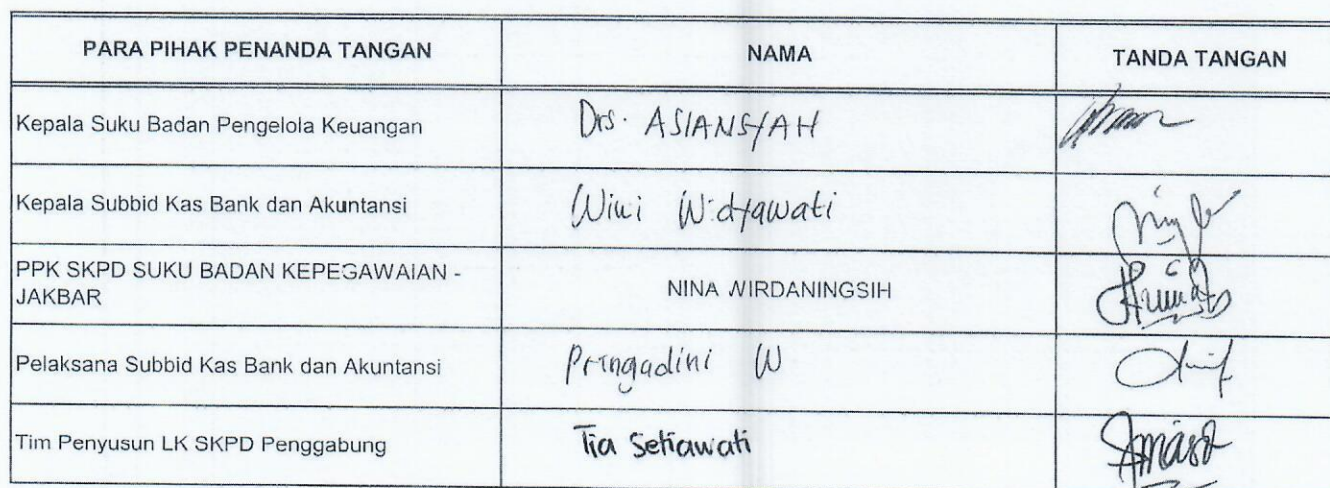 PARA PIHAK PENANDA TANGAN NAMA TANDA TANGAN
Kepala Suku Badan Pengelola Keuangan Drs. ASIANSYAH
Kepala Subbid Kas Bank dan Akuntansi Wiwi Widyawati
PPK SKPD SUKU BADAN KEPEGAWAIAN -
JAKBAR NINA WIRDANINGSIH
Pelaksana Subbid Kas Bank dan Akuntansi Pringadini W
Tim Penyusun LK SKPD Penggabung Tia Setiawati